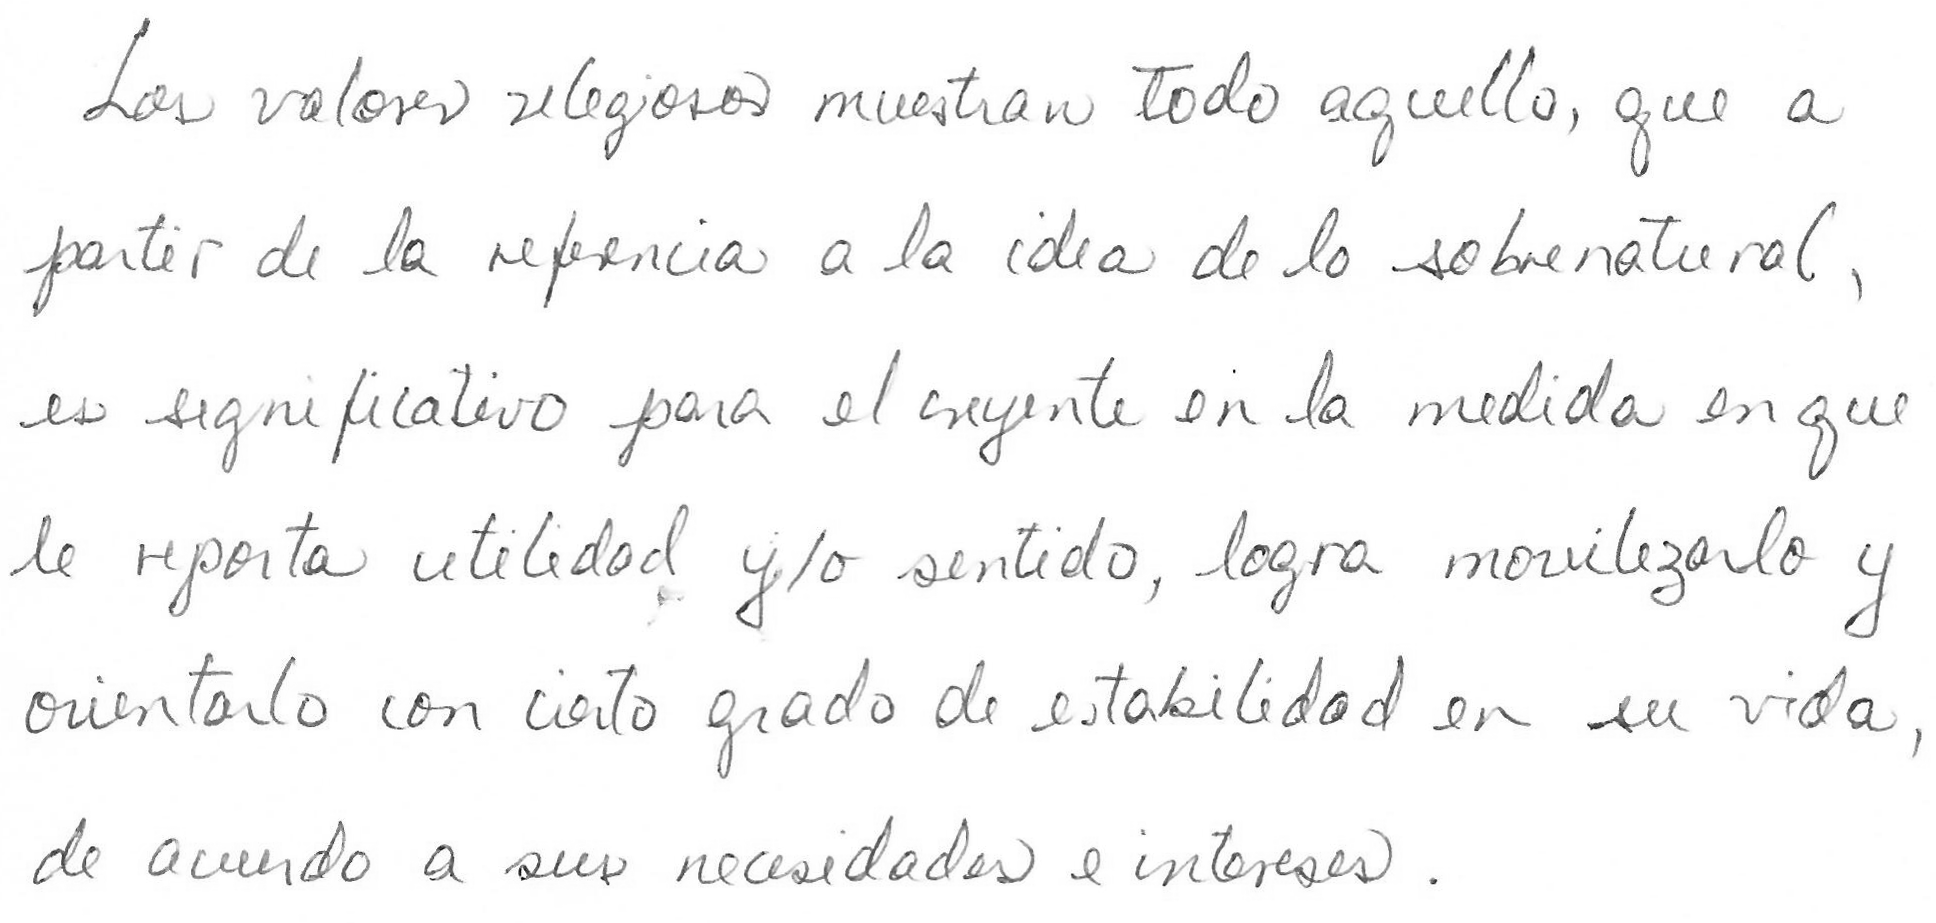 Los valores religiosos muestran todo aquello, que a
partir de la referencia a la idea de lo sobrenatural,
es significativo para el creyente en la medida en que
le reporta utilidad y/o sentido, logra movilizarlo y
orientarlo con cierto grado de estabilidad en su vida,
de acuerdo a sus necesidades e intereses.